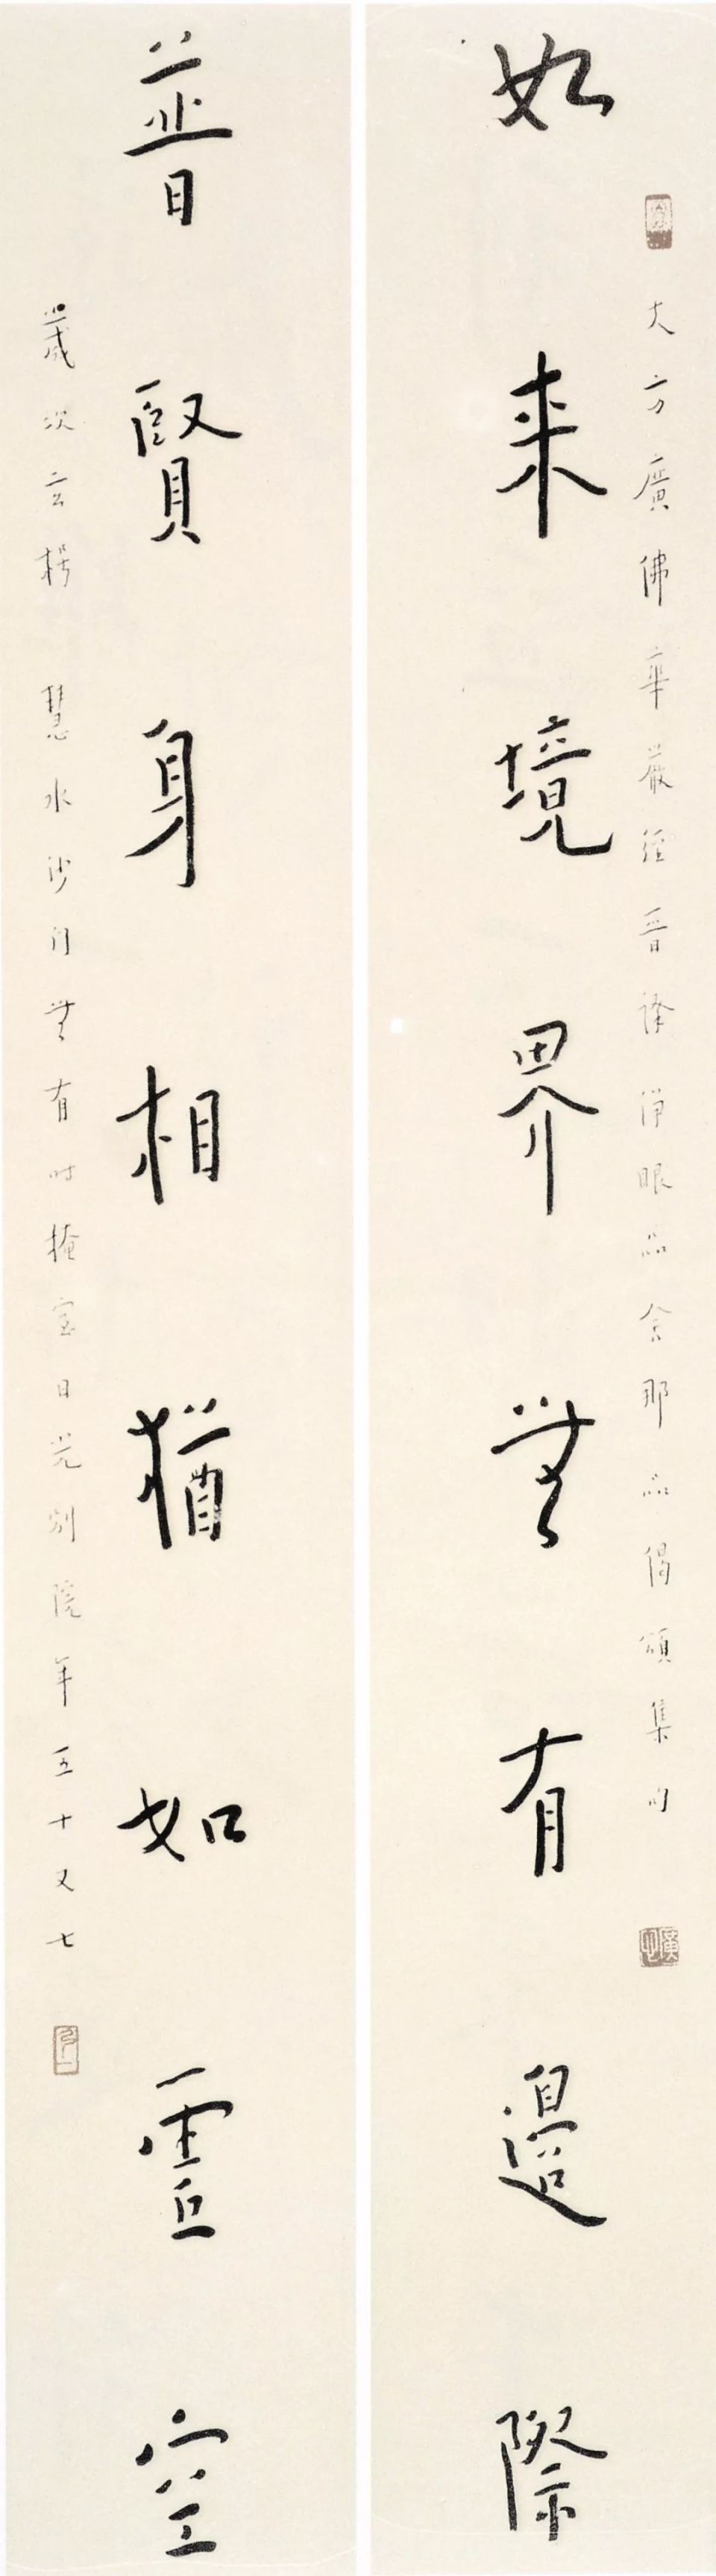 大方廣佛華嚴經晉譯淨眼品舍那品偈頌集句
如來境界無有邊際
普賢身相猶如虛空
歲次玄枵 慧水沙門無有時掩室日光別院年五十又七